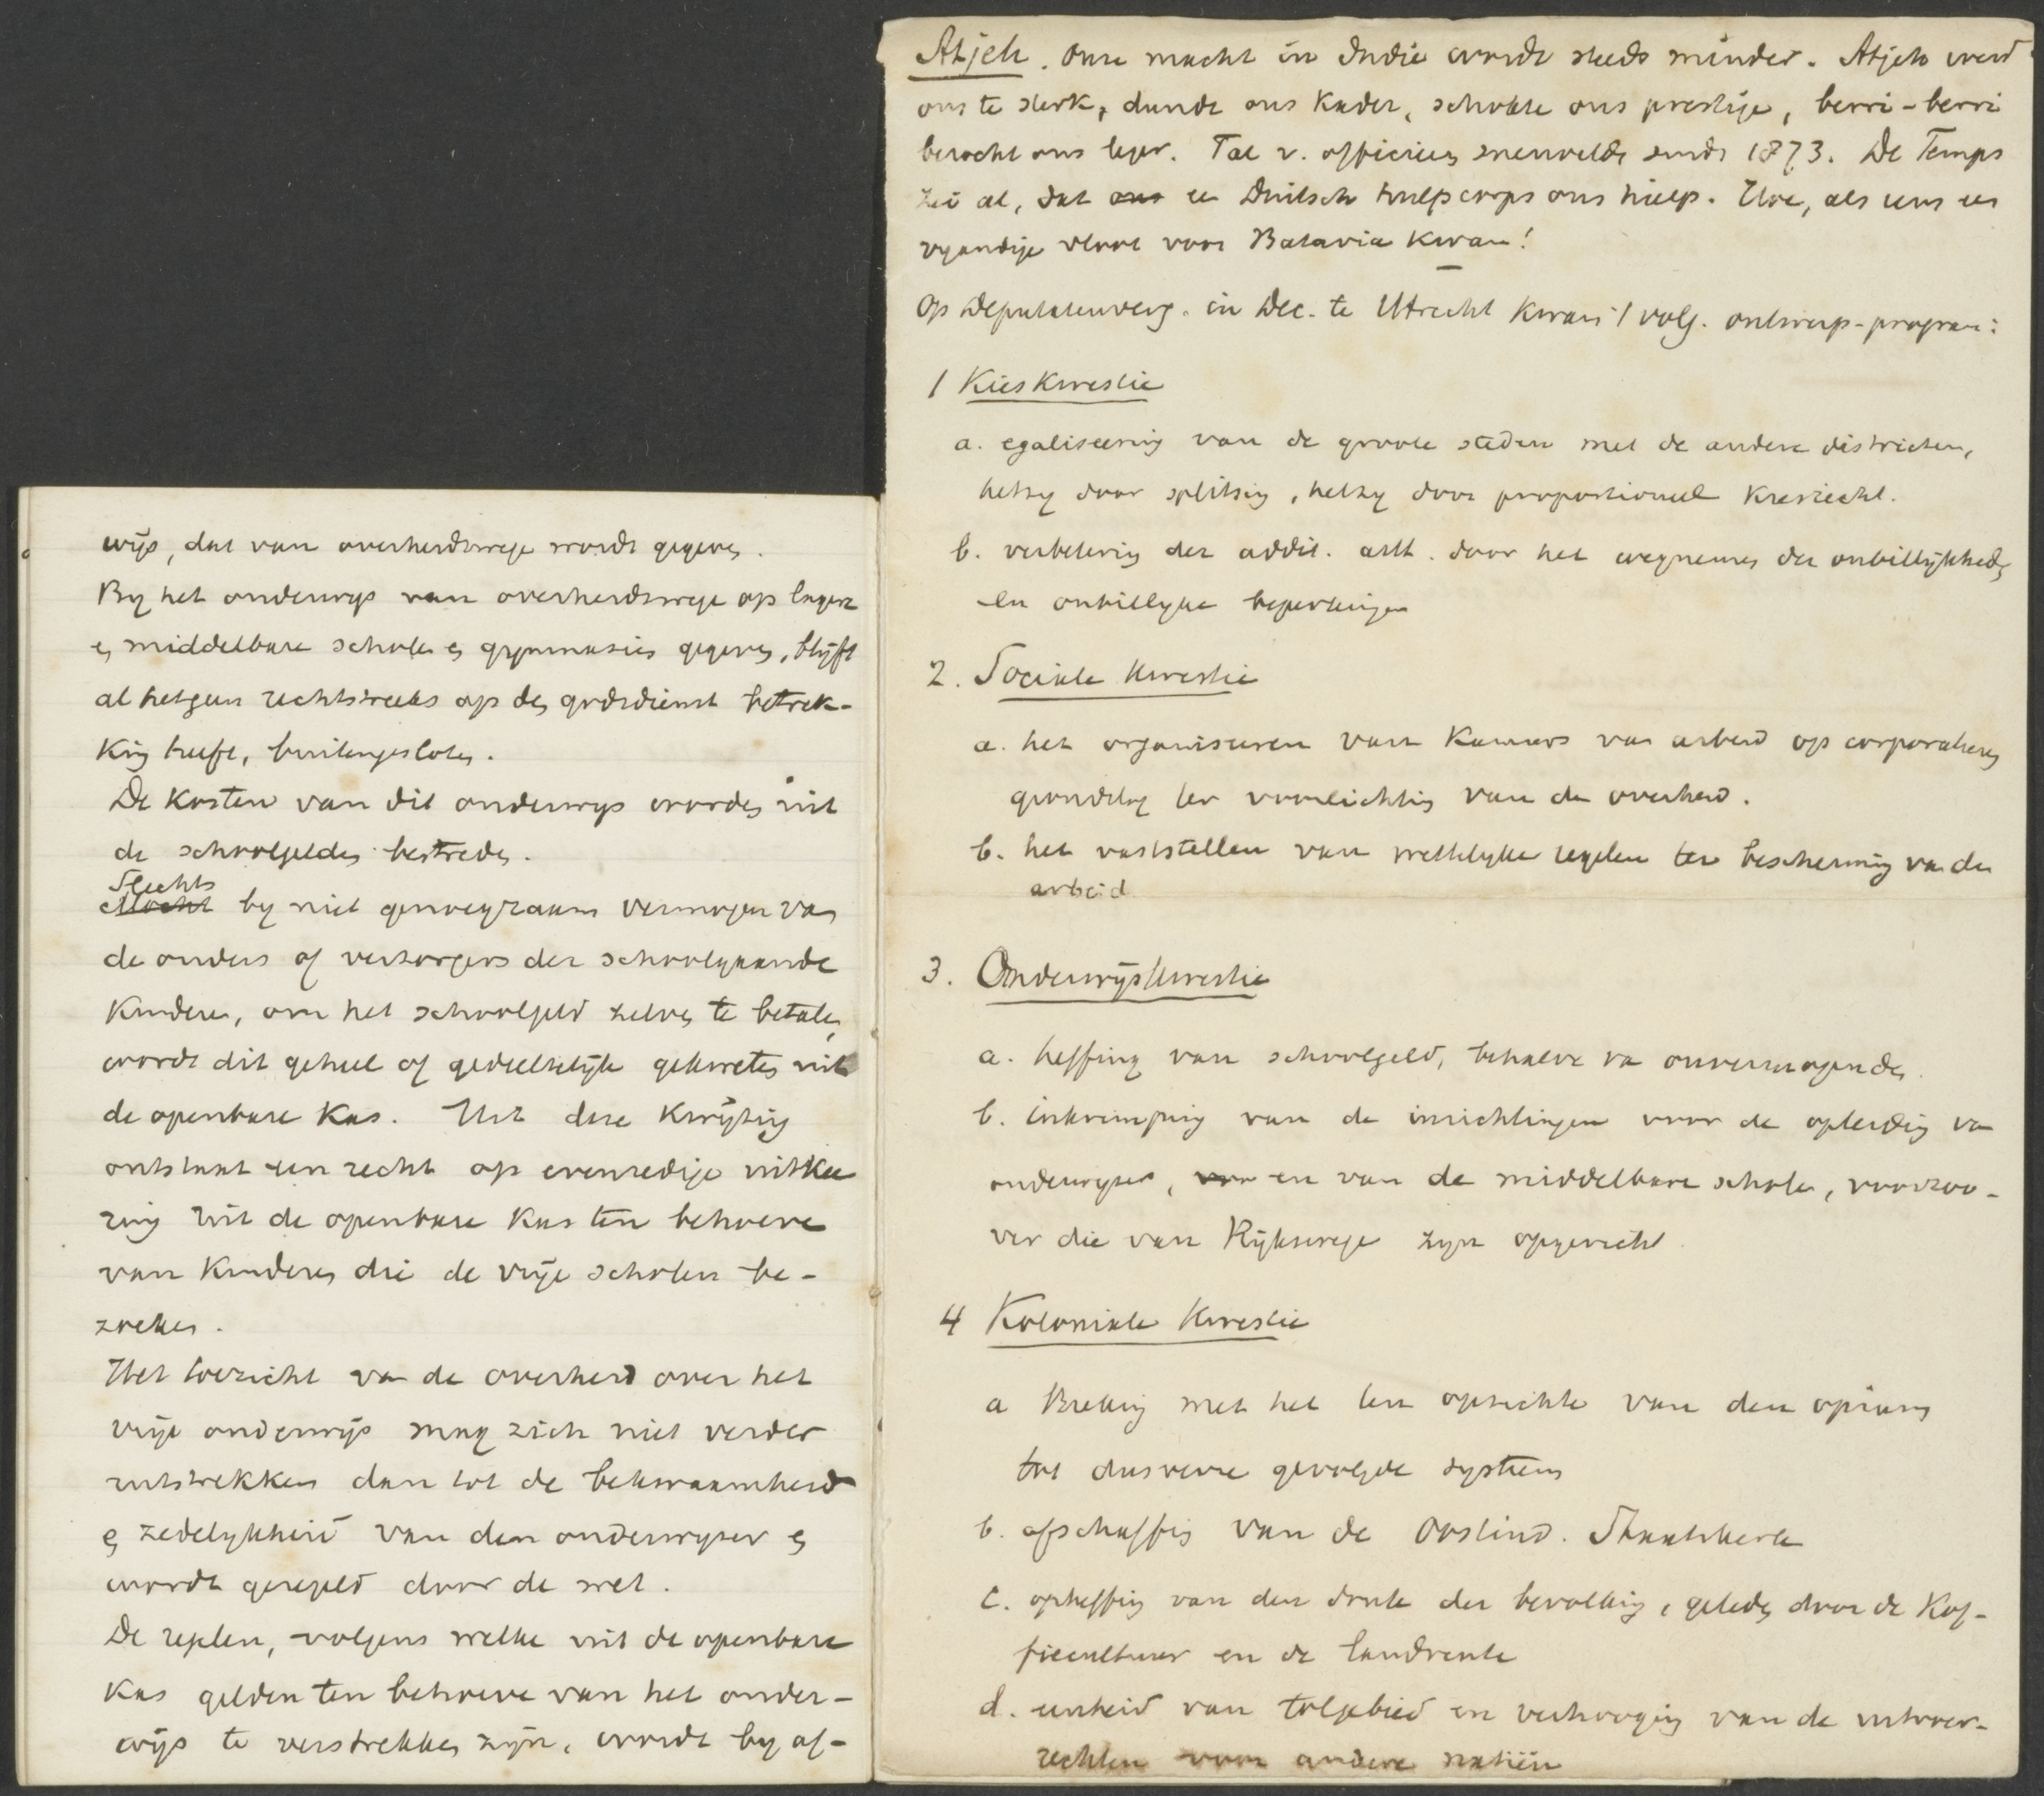 wijs, dat van overheidswege wordt gegeven.
By het onderwijs van overheidswege op lagere
en middelbare scholen en gymnasies gegeven, blijft
al hetgeen rechtstreeks op den godsdienst betrek-
king heeft, buitengesloten.
De kosten van dit onderwijs worden uit
de schoolgelden bestreden.
Slechts
Mocht by niet genoegzaam vermogen van
de ouders of verzorgers der schoolgaande
kinderen, om het schoolgeld zelven te betalen,
wordt dit geheel of gedeeltelijk gekweten uit
de openbare kas. Uit deze kwijting
ontstaat een recht op evenredige uitkee
ring uit de openbare kas ten behoeve
van kinderen die de vrije scholen be-
zoeken.
Het toezicht van de overheid over het
vrije onderwijs mag zich niet verder
uitstrekken dan tot de bekwaamheid
en zedelykheid van den onderwyzer en
wordt geregeld door de wet.
De regelen, volgens welke uit de openbare
kas gelden ten behoeve van het onder-
wijs te verstrekken zijn, wordt by af-
Atjeh. Onze macht in Indie wordt steeds minder. Atjeh werd
ons te sterk, dunde ons kader, schokte ons prestige, berri-berri
bezocht ons leger. Tal v. officieren sneuvelde sinds 1873. De Temps
zei al, dat ons een Duitsch hulpcorps ons hielp. Hoe, als eens een
vyandige vloot voor Batavia kwam!
Op Deputatenverg. in Dec. te Utrecht kwam 't volg. ontwerp-program:
1 Kieskwestie
a. egaliseering van de groote steden met de andere districten,
hetzy door splitsing, hetzy door proportioneel kiesrecht.
b. verbetering der addit. artt. door het wegnemen der onbillijkheden
en onbillyke beperkingen
2. Sociale kwestie
a. het organiseeren van Kamers van arbeid op corporatieven
grondslag ter voorlichting van de overheid.
b. het vaststellen van wettelyke regelen ter bescherming van den
arbeid
3. Onderwijskwestie
a. heffing van schoolgeld, behalve van onvermogenden.
b. inkrimping van de inrichtingen voor de opleiding van
onderwyzers, van en van de middelbare scholen, voorzoo-
ver die van Rijkswege zyn opgericht.
4 Koloniale kwestie
a Breking met het ten opzichte van den opium
tot dusverre gevolgde systeem
b. afschaffing van de Oostind. Staatskerk
c. opheffing van den druk der bevolking, geleden door de kof-
fiecultuur en de landrente
d. eenheid van tolgebied en verhooging van de invoer-
rechten voor andere natiën